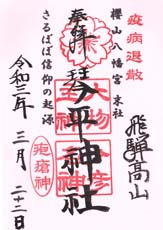 疫病退散
飛騨高山
櫻山八幡宮 末社
奉拝
天王
今平神社
さるぼぼ信仰の起源
疱瘡神
令和三年 三月 二十二日